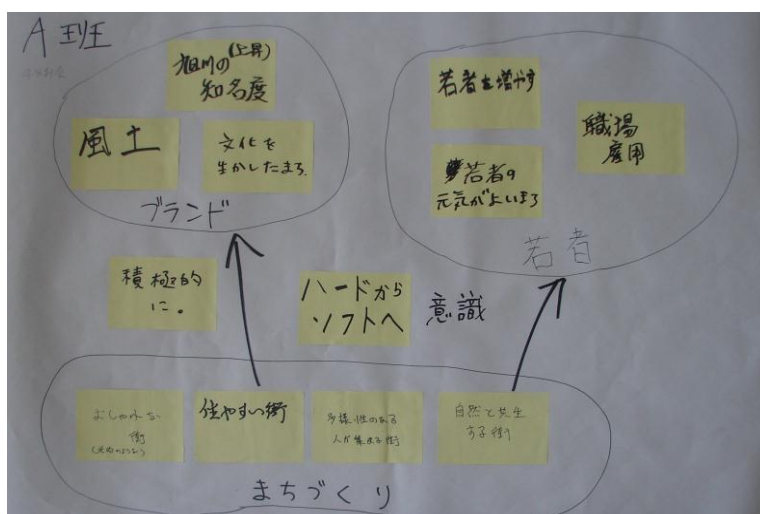 A班
旭川の(上昇)
知名度
風土
文化を
生かしたまち
ブランド
若者を増やす
職場
雇用
若者の
元気がよいまち
若者
積極的
に。
ハードから
ソフトへ
意識
おしゃれな
街
住やすい街
多様性のある
人が集まる街
自然と共生
する街
まちづくり